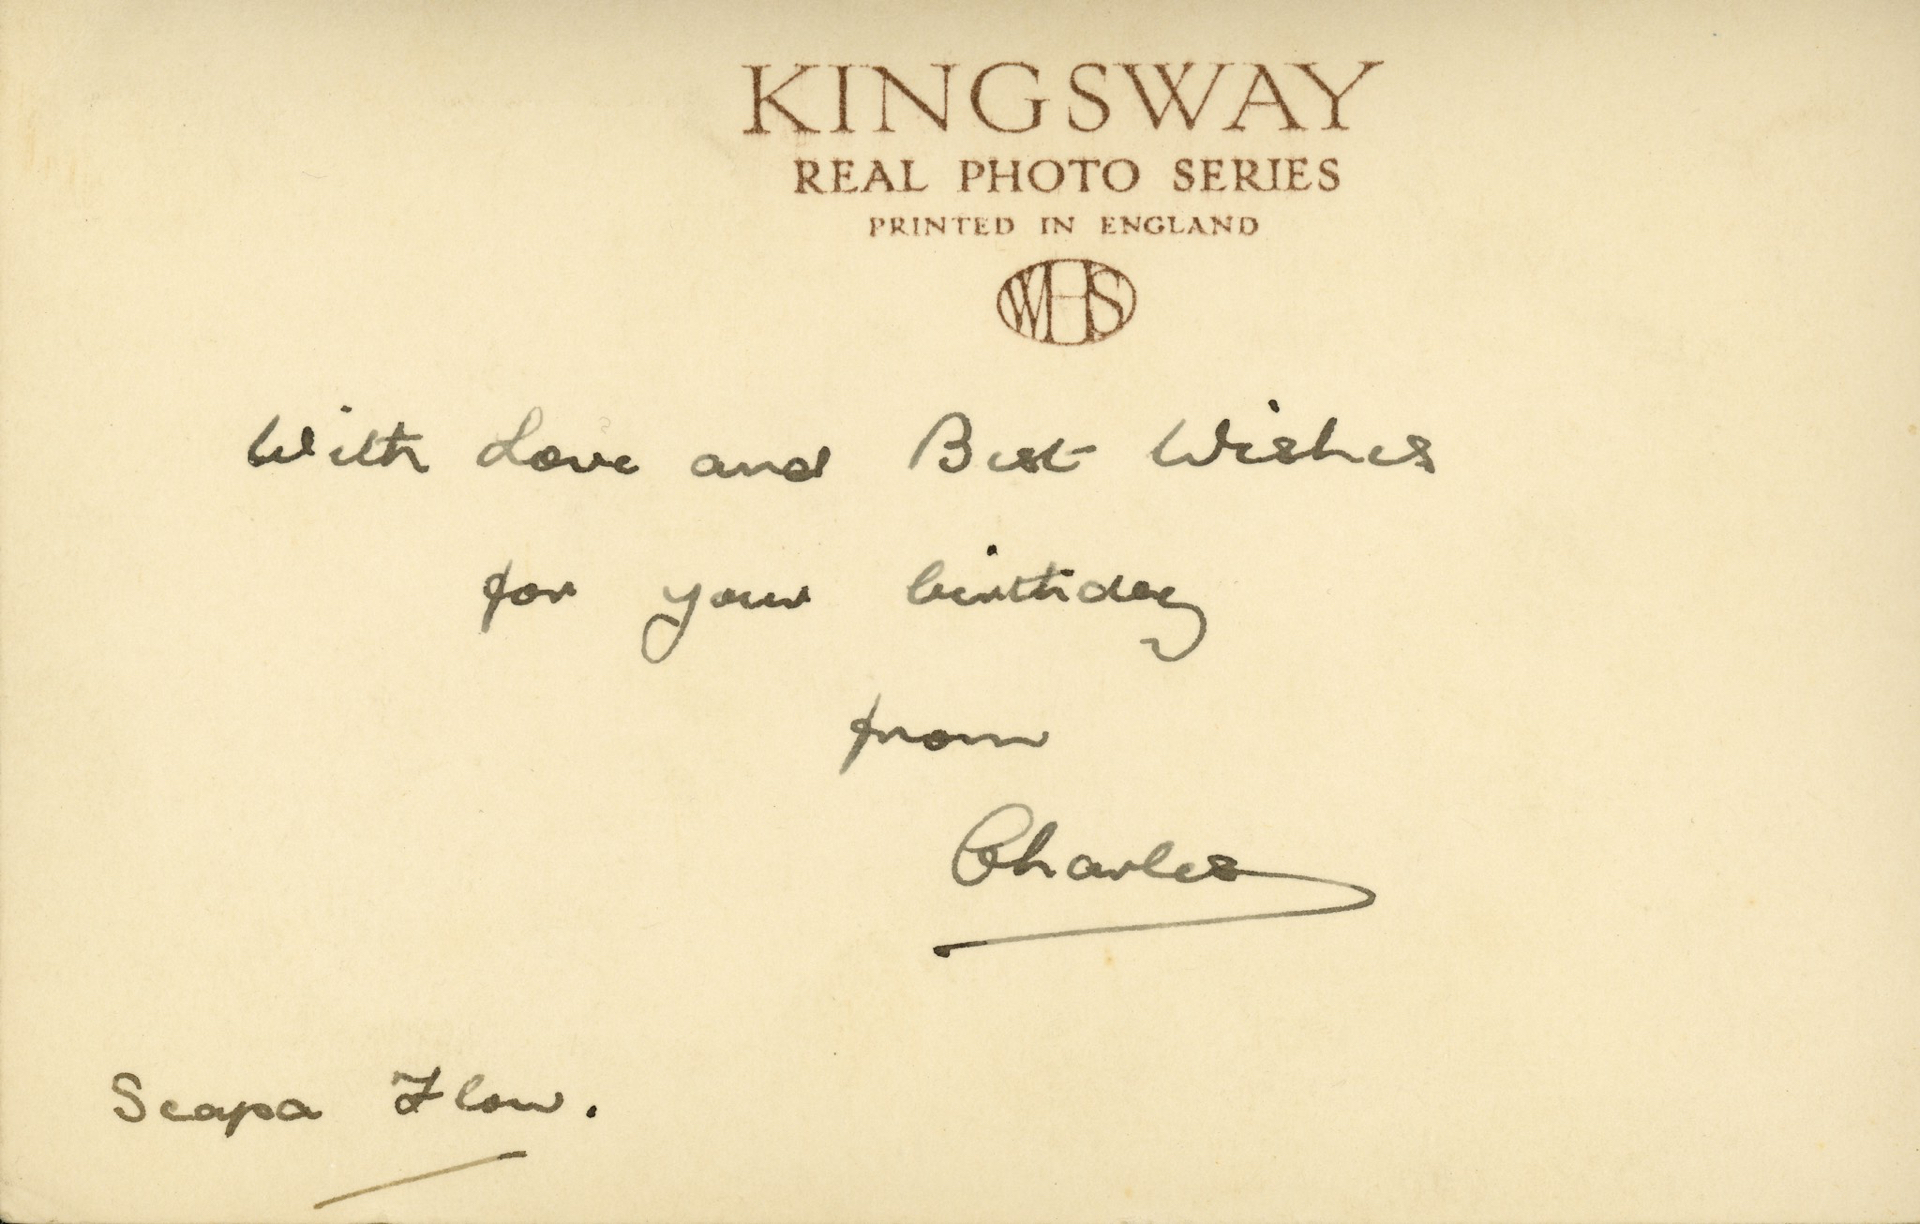 KINGSWAY
REAL PHOTO SERIES
PRINTED IN ENGLAND
WHS
With Love and Best Wishes
for your birthday
from
Charles
Scapa Flow.